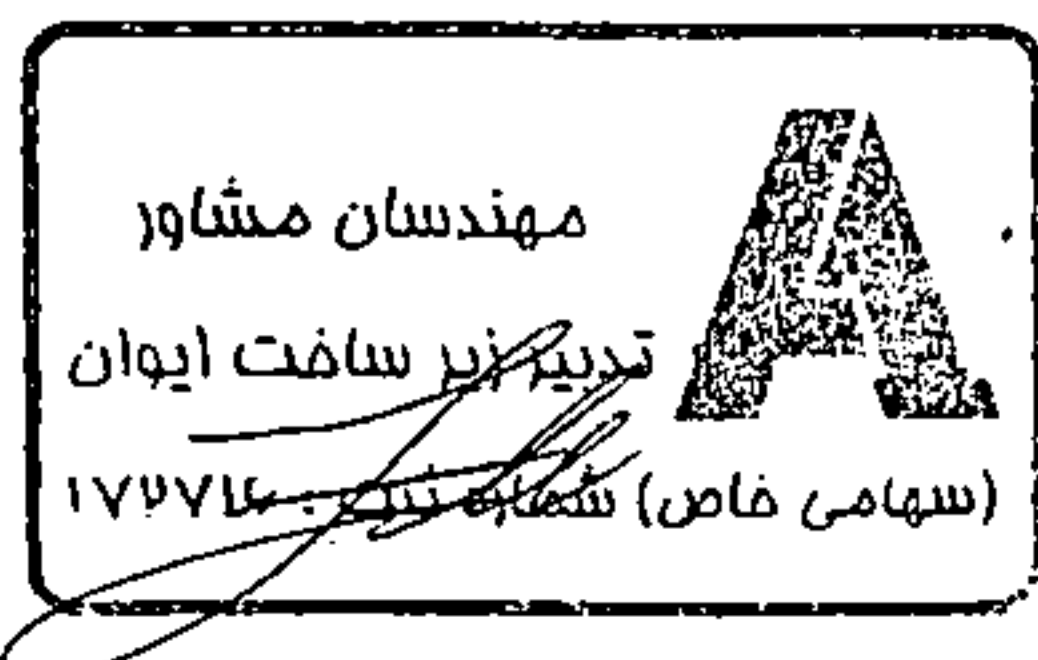 مهندسان مشاور
تدبیر زیر ساخت ایوان
(سهامی خاص) شماره ثبت
A